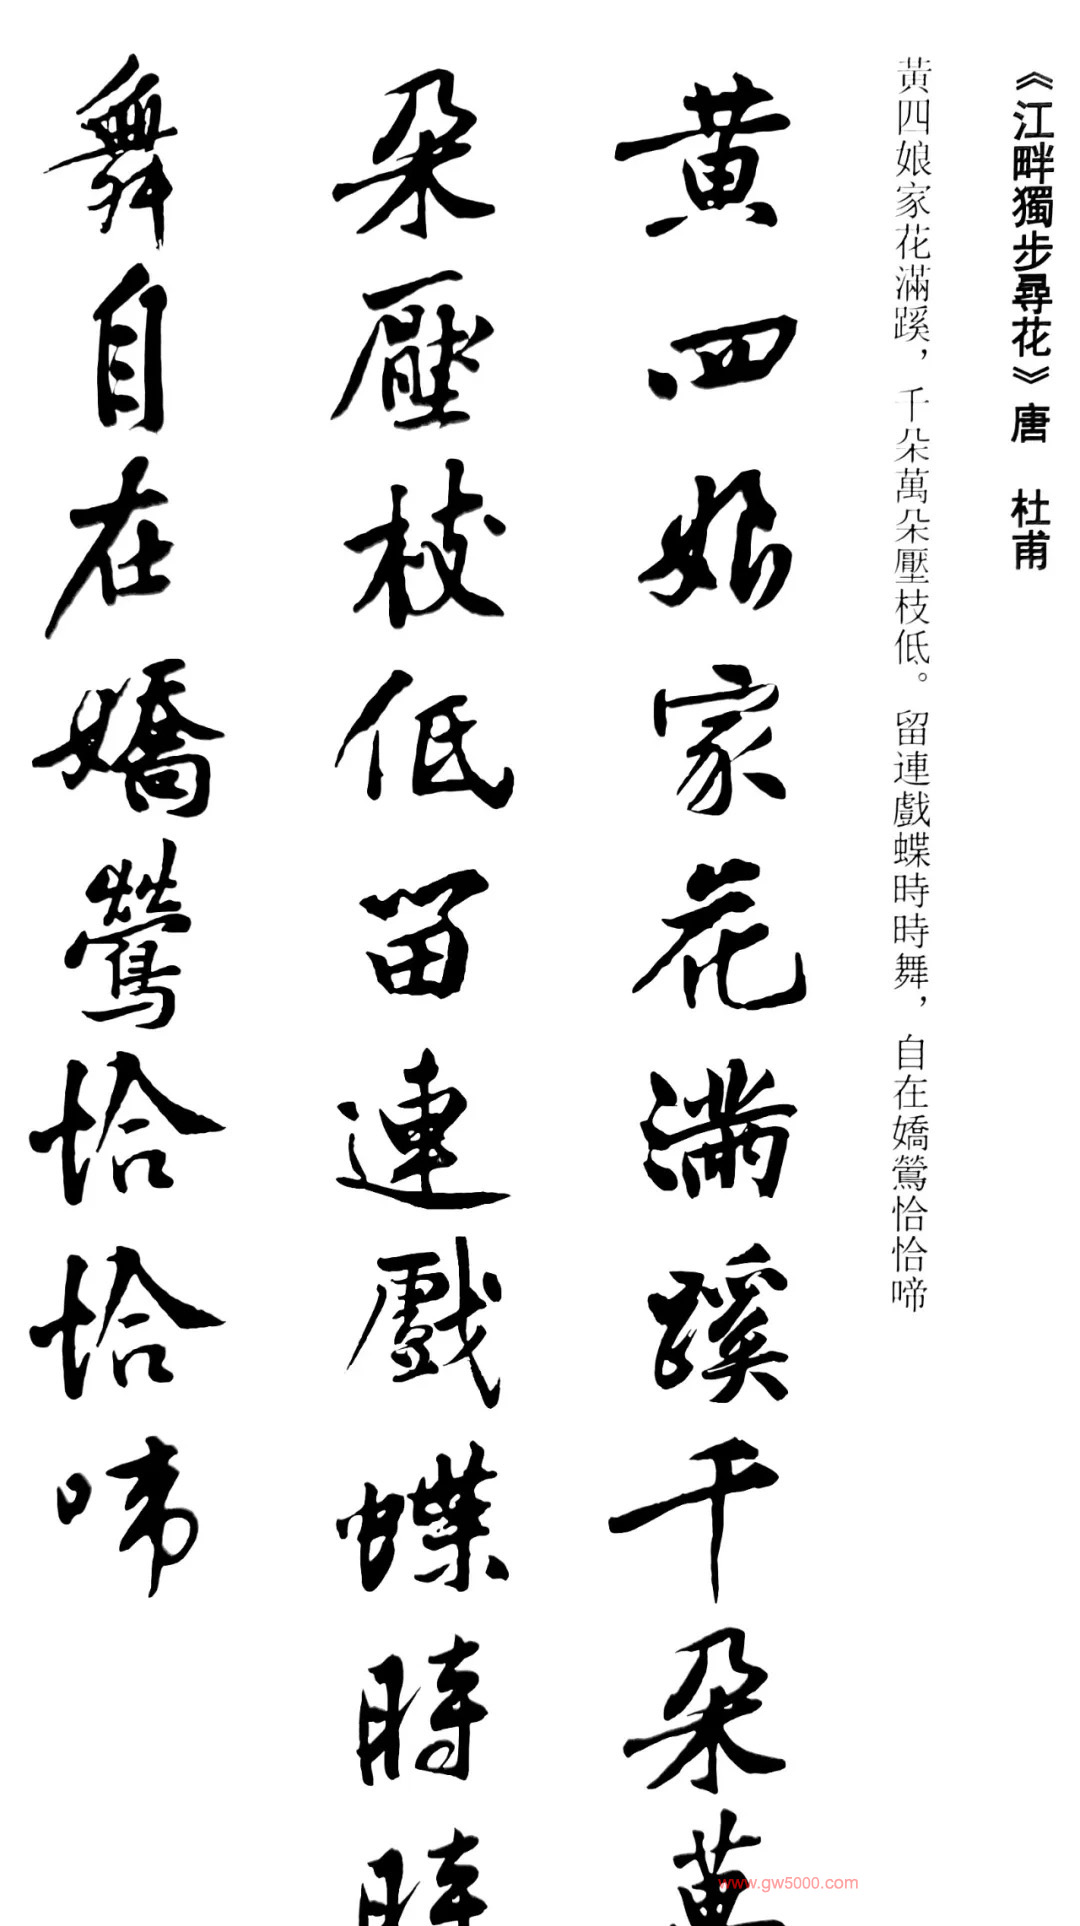 《江畔獨步尋花》唐　杜甫
黃四娘家花滿蹊，千朵萬朵壓枝低。留連戲蝶時時舞，自在嬌鶯恰恰啼
黃四娘家花滿蹊千朵萬
朵壓枝低留連戲蝶時時
舞自在嬌鶯恰恰啼
www.gw5000.com